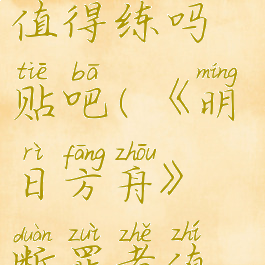 值得练吗
tiē bā míng
贴吧(《明
rì fāng zhōu
日方舟》
duàn zuì zhě zhí
断罪者值